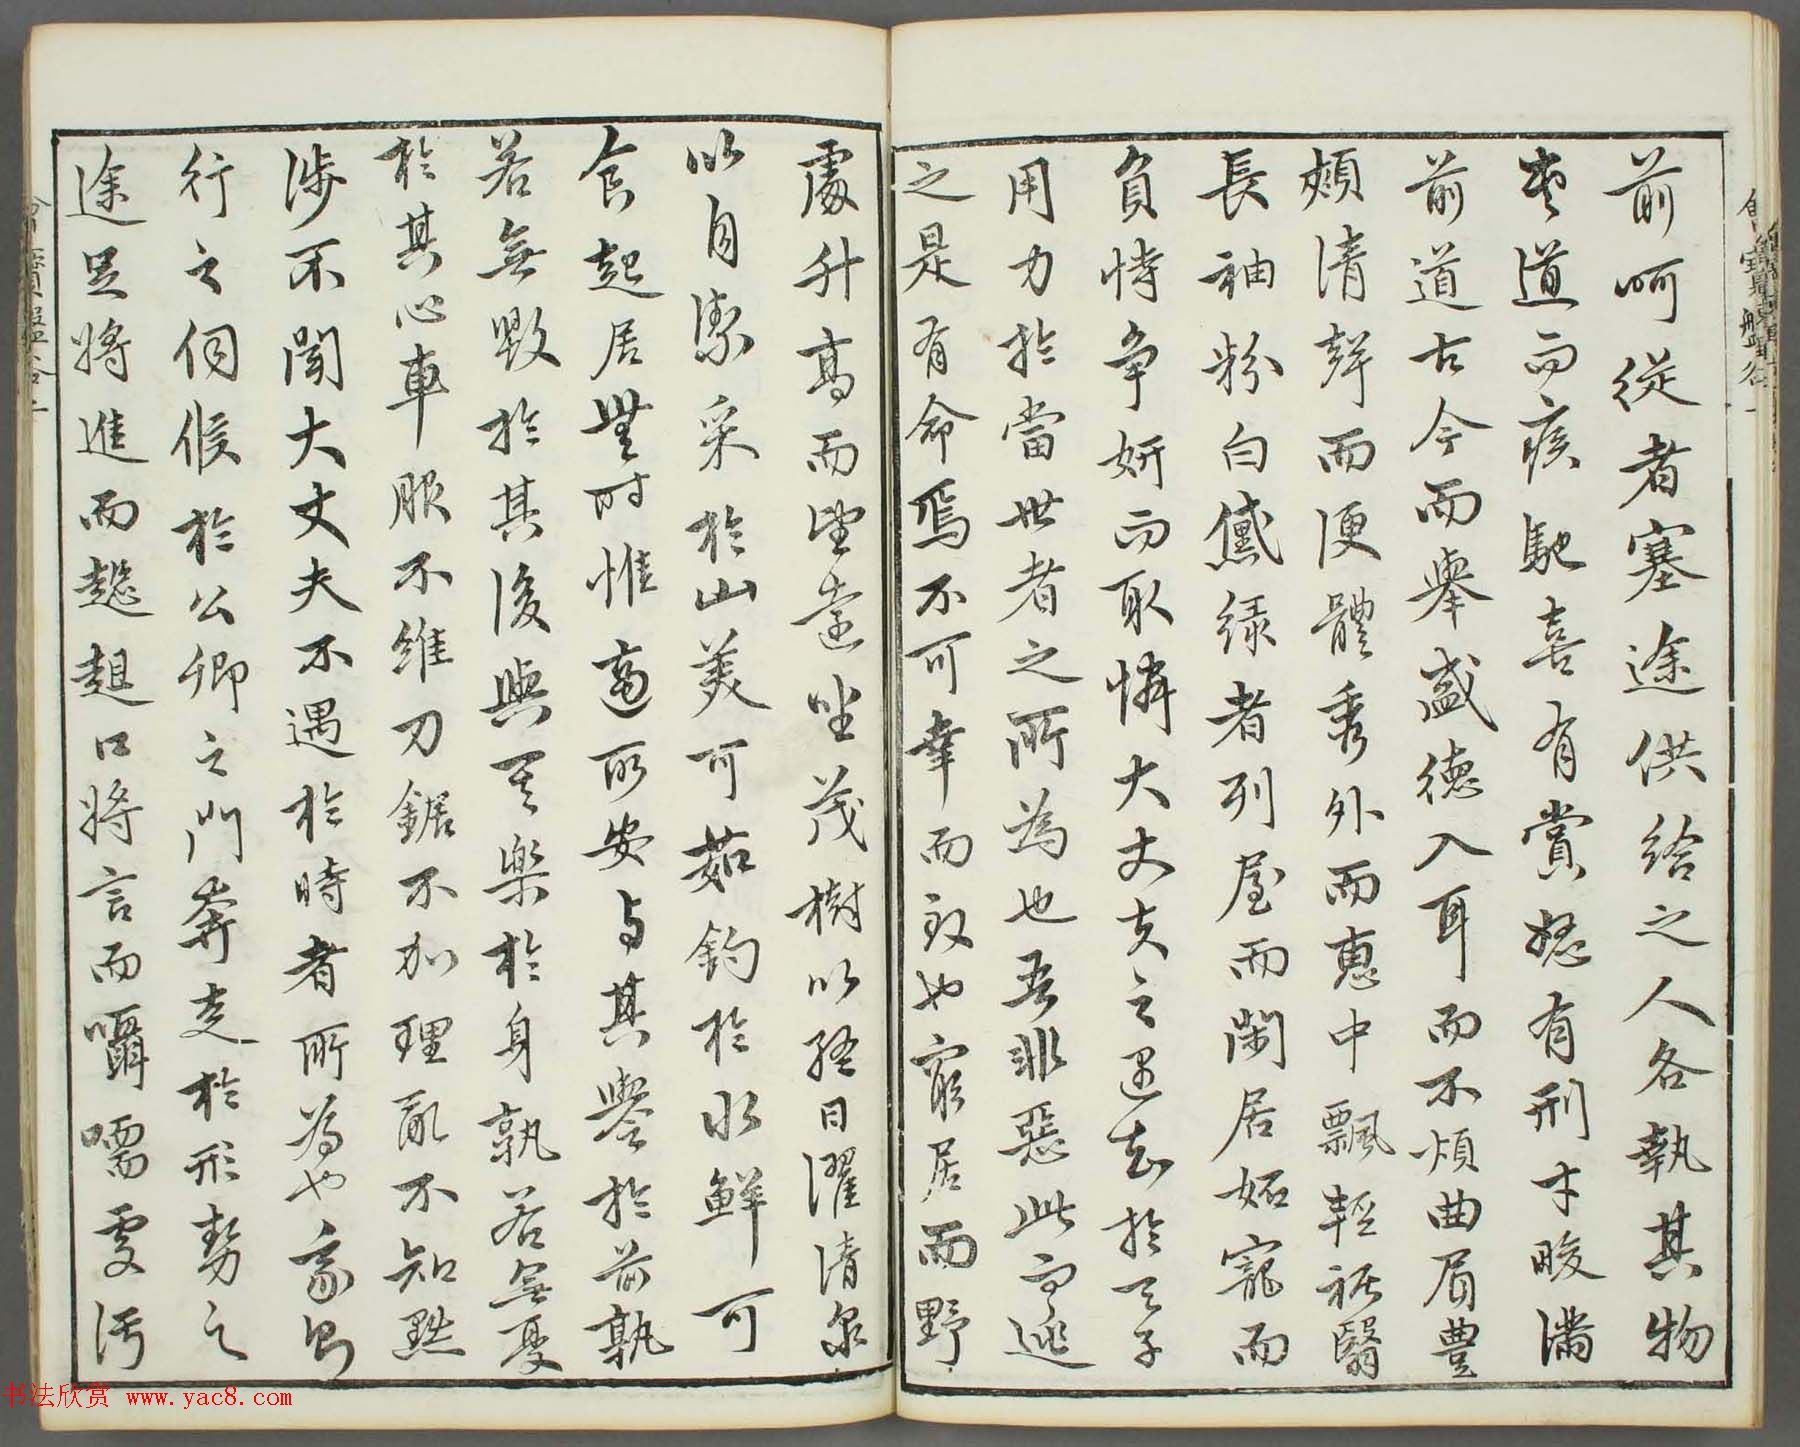 前呵從者塞途供給之人各執其物
夾道而疾馳喜有賞怒有刑才畯滿
前道古今而舉盛德入耳而不煩曲眉豊
頰清聲而便體秀外而惠中飄輕裾翳
長袖粉白黛緑者列屋而閑居妬寵而
負恃争妍而取憐大丈夫之遇知於天子
用力於當世者之所為也吾非惡此而逃
之是有命焉不可幸而致也窮居而野
處升高而望遠坐茂樹以終日濯清泉
以自潔采於山美可茹釣於水鮮可
食起居無時惟適所安与其譽於前孰
若無毀於其後與其樂於身孰若無憂
於其心車服不維刀鋸不加理亂不知黜
陟不聞大丈夫不遇於時者所為也我則
行之伺候於公卿之門奔走於形勢之
途足將進而趑趄口將言而囁嚅處污
书法欣赏 www.yac8.com